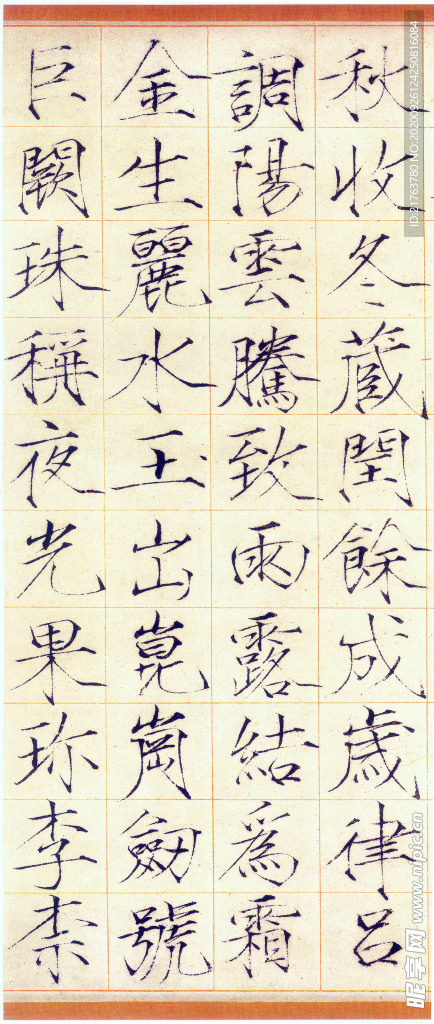 秋收冬蔵閏餘成歲律吕
調陽雲騰致雨露結為霜
金生麗水玉出崑崗劒號
巨闕珠稱夜光果珎李柰
ID:21763780 NO:20200926124250816084
昵享网 www.nipic.cn